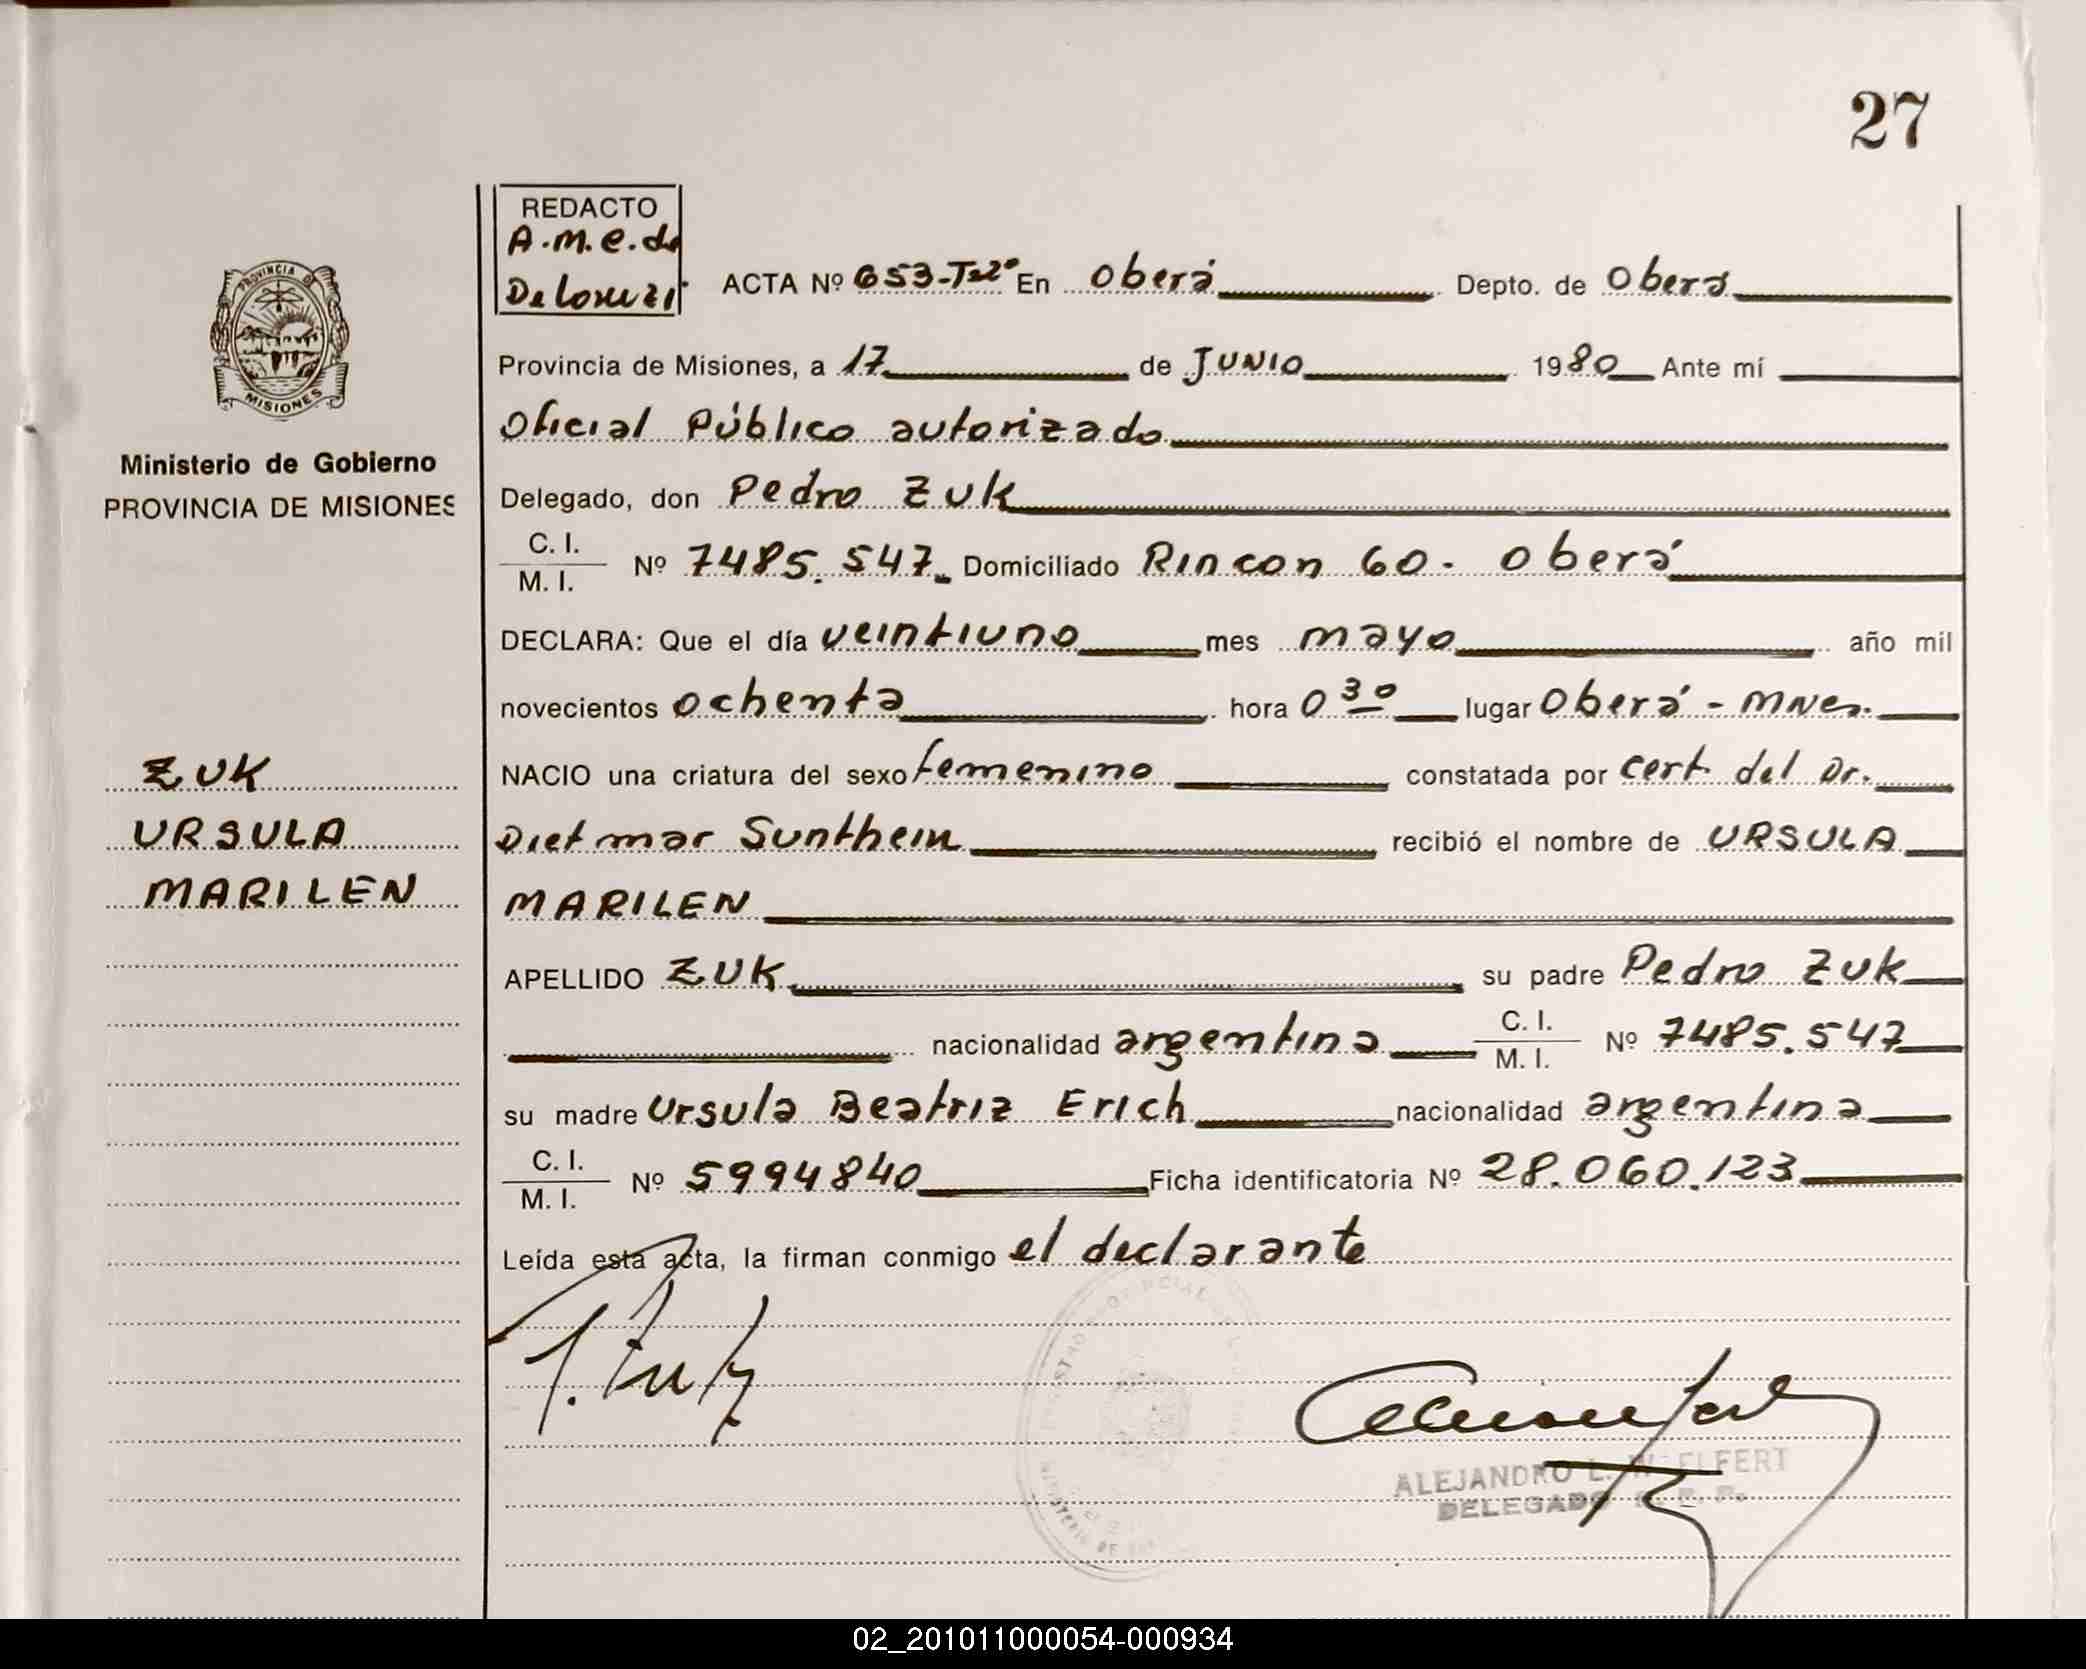 27
REDACTO
A.M.E. de
Delorenzi
PROVINCIA DE
MISIONES
ACTA Nº 653-Tº2º En Oberá Depto. de Oberá
Provincia de Misiones, a 17 de JUNIO 1980 Ante mí
Oficial Público autorizado
Ministerio de Gobierno
PROVINCIA DE MISIONES
Delegado, don Pedro Zuk
C. I.
M. I. Nº 7485.547 Domiciliado Rincon 60. Oberá
DECLARA: Que el día veintiuno mes mayo año mil
novecientos ochenta hora 0 30 lugar Oberá - Mnes.
NACIO una criatura del sexo femenino constatada por cert. del Dr.
ZUK
URSULA
MARILEN
Dietmar Sunthein recibió el nombre de URSULA
MARILEN
APELLIDO ZUK su padre Pedro Zuk
nacionalidad argentina C. I. M. I. Nº 7485.547
su madre Ursula Beatriz Erich nacionalidad argentina
C. I.
M. I. Nº 5994840 Ficha identificatoria Nº 28.060.123
Leída esta acta, la firman conmigo el declarante
ALEJANDRO L. WELFERT
DELEGADO
02_201011000054-000934